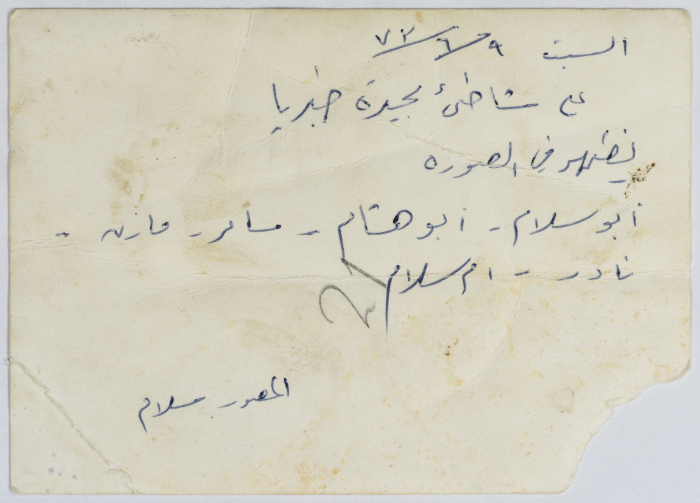 السبت ٩/٦/٧٣
على شاطئ بحيرة طبريا
يظهر في الصوره
أبو سلام - أبو هشام - سامر - مازن -
نادر - ام سلام
21
المصور سلام